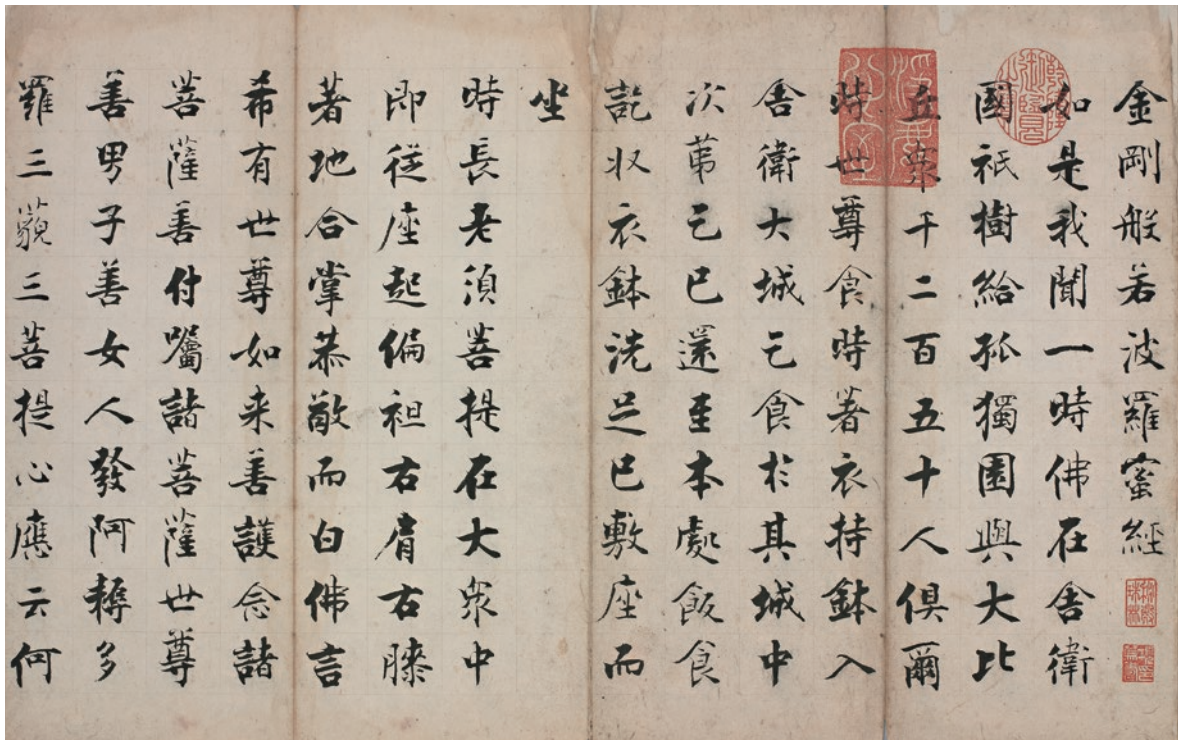 金剛般若波羅蜜經
如是我聞一時佛在舍衛
國祇樹給孤獨園與大比
丘衆千二百五十人俱爾
時世尊食時著衣持鉢入
舍衛大城乞食於其城中
次苐乞已還至本處飯食
訖収衣鉢洗足已敷座而
坐
時長老須菩提在大衆中
即從座起偏袒右肩右膝
著地合掌恭敬而白佛言
希有世尊如来善護念諸
菩薩善付囑諸菩薩世尊
善男子善女人發阿耨多
羅三藐三菩提心應云何